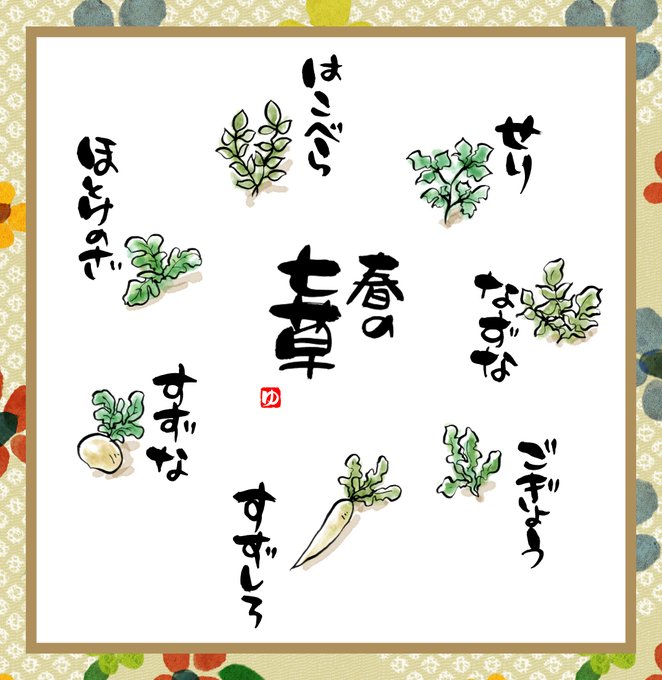 春の
七草
ゆ
せり
なずな
ごぎょう
はこべら
ほとけのざ
すずな
すずしろ